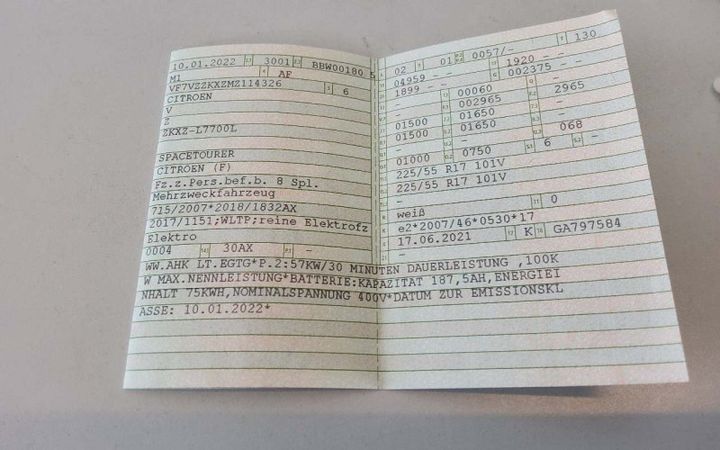 10.01.2022 3001 BBW00180 5
M1 AF
VF7VZZKXZMZ114326 6
CITROEN
V
Z
ZKXZ-L7700L
SPACETOURER
CITROEN (F)
Fz.z.Pers.bef.b. 8 Spl.
Mehrzweckfahrzeug
715/2007*2018/1832AX
2017/1151;WLTP;reine Elektrofz
Elektro
0004 30AX -
02 01 0057/- 130
04959 - - 1920 - -
1899 - - 002375 - -
- 00060 -
- 002965 2965
01500 01650 -
01500 01650 -
- - 068
01000 0750 6 -
225/55 R17 101V
225/55 R17 101V
-
weiß 0
e2*2007/46*0530*17
17.06.2021 K GA797584
- -
WW.AHK LT.EGTG*P.2:57KW/30 MINUTEN DAUERLEISTUNG ,100K
W MAX.NENNLEISTUNG*BATTERIE:KAPAZITAT 187,5AH,ENERGIEI
NHALT 75KWH,NOMINALSPANNUNG 400V*DATUM ZUR EMISSIONSKL
ASSE: 10.01.2022*